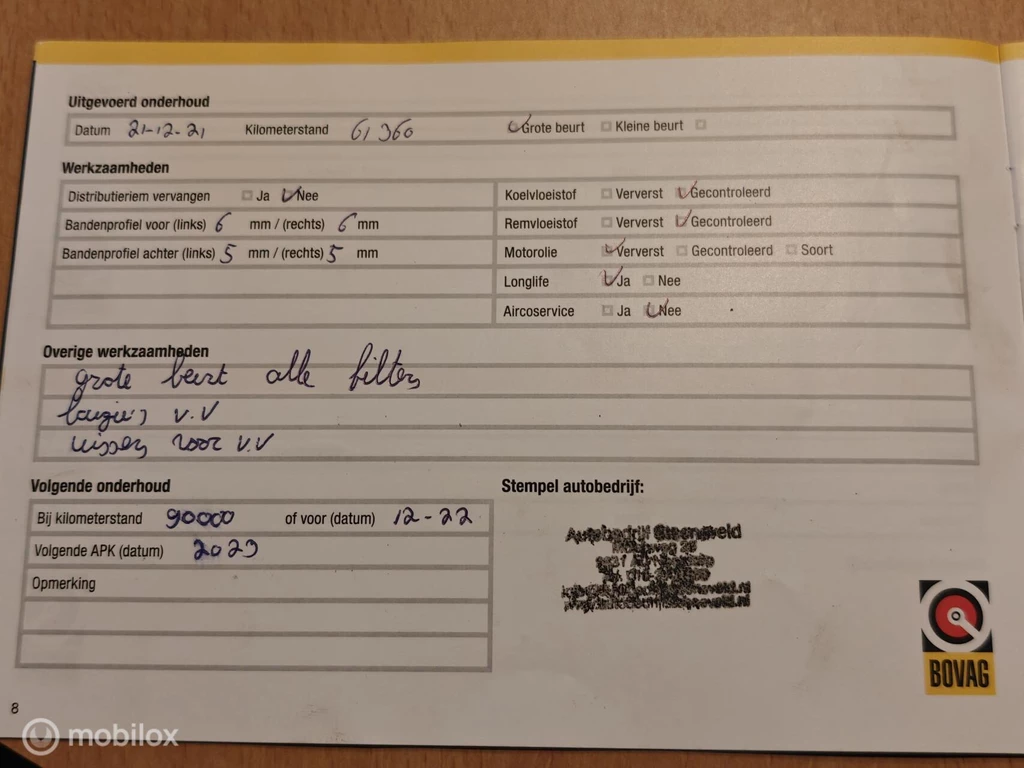 Uitgevoerd onderhoud
Datum 21-12-21 Kilometerstand 61360 Grote beurt Kleine beurt
Werkzaamheden
Distributieriem vervangen Ja Nee
Bandenprofiel voor (links) 6 mm / (rechts) 6 mm
Bandenprofiel achter (links) 5 mm / (rechts) 5 mm
Koelvloeistof Ververst Gecontroleerd
Remvloeistof Ververst Gecontroleerd
Motorolie Ververst Gecontroleerd Soort
Longlife Ja Nee
Aircoservice Ja Nee
Overige werkzaamheden
grote beurt alle filters
bougies v.v
wissers voor v.v
Volgende onderhoud
Bij kilometerstand 90000 of voor (datum) 12-22
Volgende APK (datum) 2023
Opmerking
Stempel autobedrijf:
Autobedrijf
BOVAG
8
mobilox